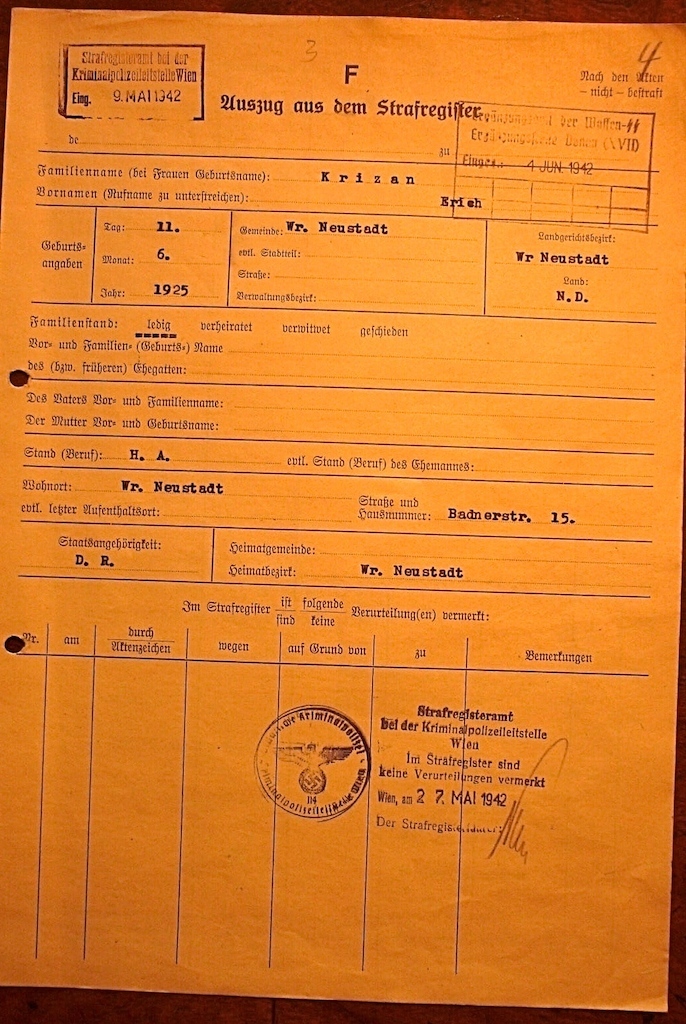 3
4
Strafregisteramt bei der
Kriminalpolizeileitstelle Wien
Eing. 9. MAI 1942
F
Nach den Akten
– nicht – bestraft
Auszug aus dem Strafregister
Ergänzungsamt der Waffen-SS
Ergänzungsstelle Donau (XVII)
Eingeg.: 4 JUN. 1942
de
zu
Familienname (bei Frauen Geburtsname): Krizan
Vornamen (Rufname zu unterstreichen): Erich
Geburts-
angaben
Tag: 11.
Monat: 6.
Jahr: 1925
Gemeinde: Wr. Neustadt
evtl. Stadtteil:
Straße:
Verwaltungsbezirk:
Landgerichtsbezirk:
Wr Neustadt
Land:
N.D.
Familienstand: ledig verheiratet verwitwet geschieden
Vor- und Familien- (Geburts-) Name
des (bzw. früheren) Ehegatten:
Des Vaters Vor- und Familienname:
Der Mutter Vor- und Geburtsname:
Stand (Beruf): H. A. evtl. Stand (Beruf) des Ehemannes:
Wohnort: Wr. Neustadt
evtl. letzter Aufenthaltsort:
Straße und
Hausnummer: Badnerstr. 15.
Staatsangehörigkeit:
D. R.
Heimatgemeinde:
Heimatbezirk: Wr. Neustadt
Im Strafregister ist folgende Verurteilung(en) vermerkt:
sind keine
Nr. am durch wegen auf Grund von zu Bemerkungen
Aktenzeichen
Kriminalpolizei
Kriminalpolizeileitstelle Wien
114
Strafregisteramt
bei der Kriminalpolizeileitstelle
Wien
Im Strafregister sind
keine Verurteilungen vermerkt
Wien, am 27. MAI 1942
Der Strafregisterführer: